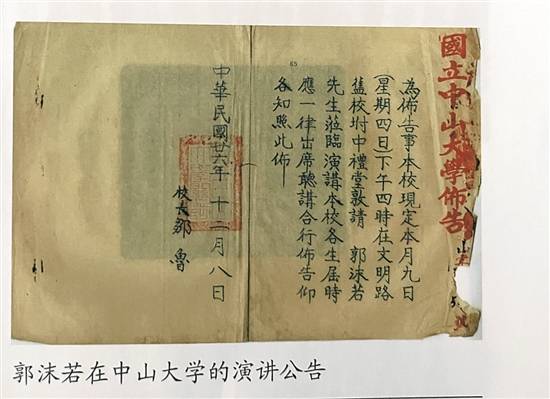 國立中山大學佈告
為佈告事本校現定本月九日
(星期四日)下午四時在文明路
舊校坿中禮堂敦請 郭沫若
先生蒞臨演講本校各生屆時
應一律出席聽講合行佈告仰
各知照此佈
65
中華民國廿六年 十二月八日
校長鄒魯
郭沫若在中山大学的演讲公告